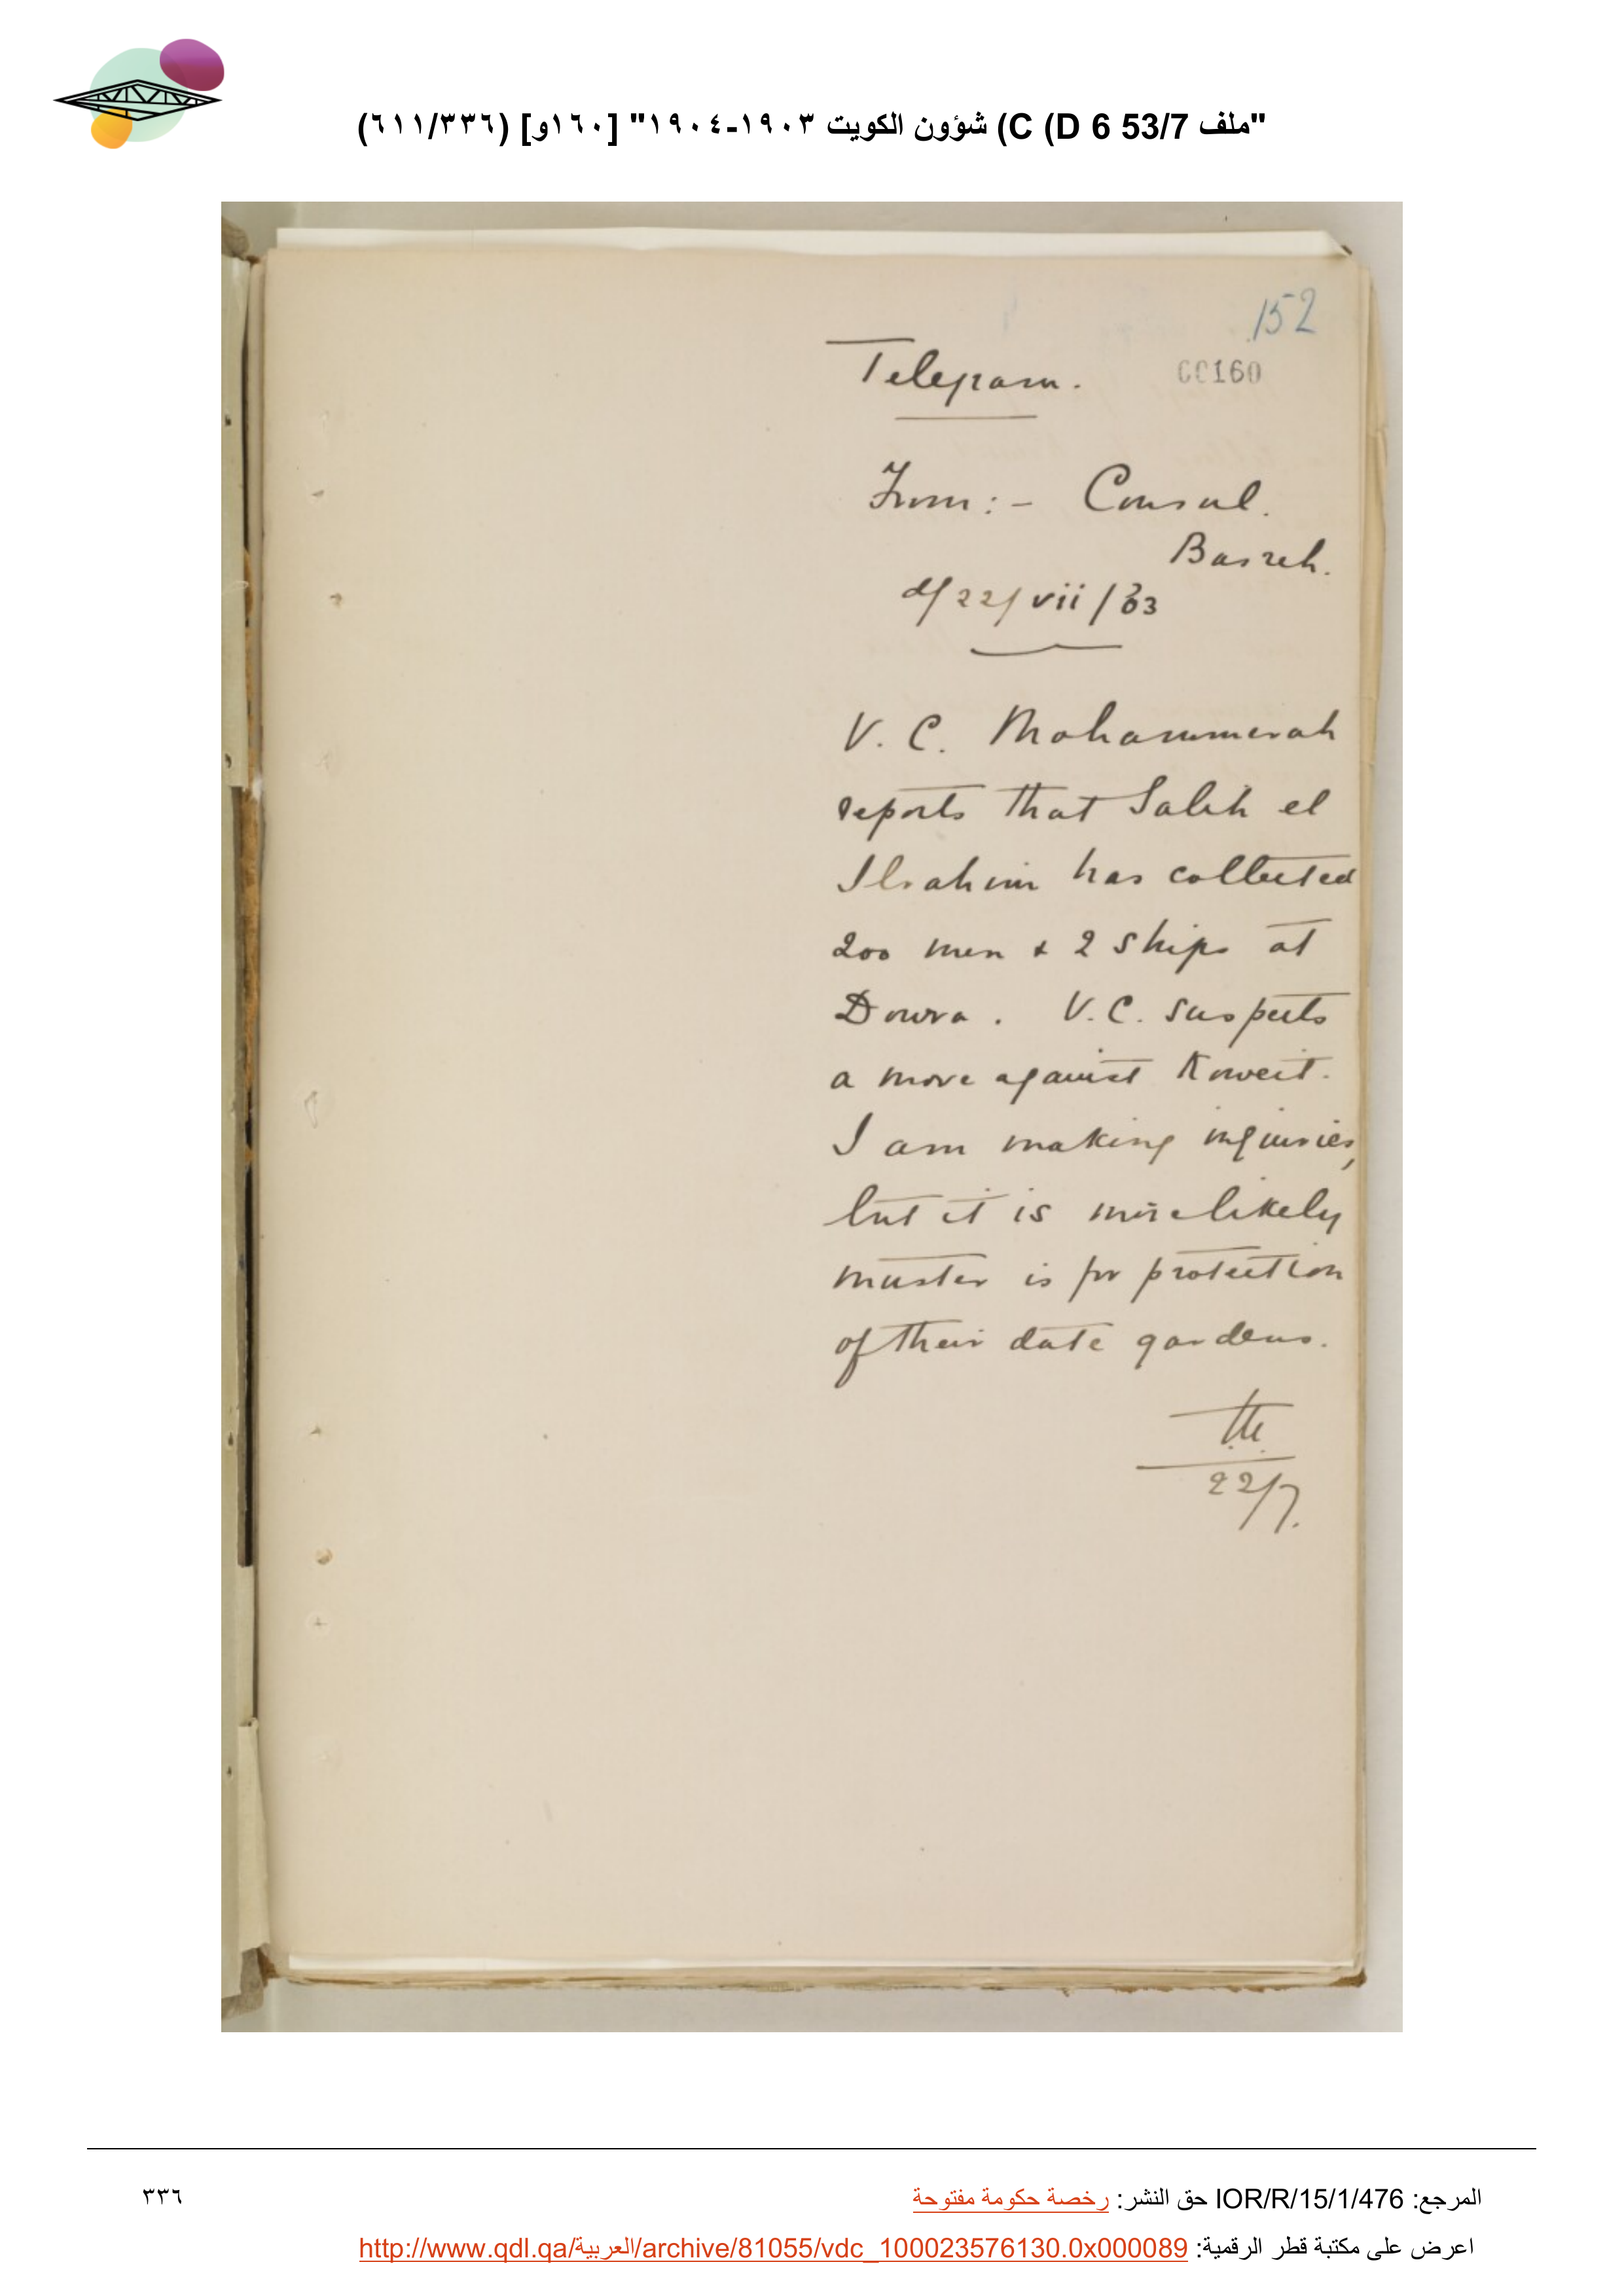 "ملف 53/7 C (D 6) شؤون الكويت ١٩٠٣-١٩٠٤" [١٦٠و] (٦١١/٣٣٦)
152
Telegram.
00160
From:- Consul.
Basreh.
d/22/vii/03
V. C. Mohammerah
reports that Salih el
Ibrahim has collected
200 men & 2 ships at
Dowra. V.C. suspects
a move against Koweit.
I am making inquiries,
but it is more likely
muster is for protection
of their date gardens.
22/7.
المرجع: IOR/R/15/1/476 حق النشر: رخصة حكومة مفتوحة
٣٣٦
اعرض على مكتبة قطر الرقمية: http://www.qdl.qa/العربية/archive/81055/vdc_100023576130.0x000089